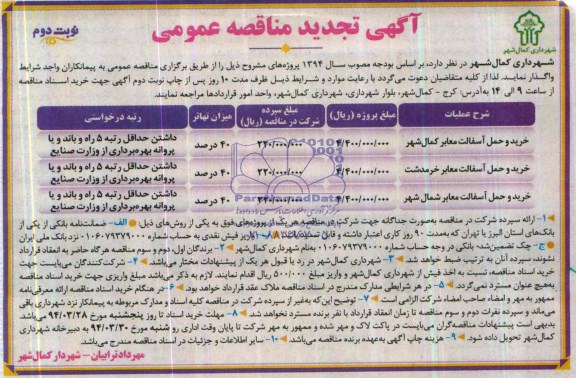 آگهی تجدید مناقصه عمومی
نوبت دوم
شهرداری کمال‌شهر
شهرداری کمال‌شهر در نظر دارد، بر اساس بودجه مصوب سال ۱۳۹۴ پروژه‌های مشروح ذیل را از طریق برگزاری مناقصه عمومی به پیمانکاران واجد شرایط
واگذار نماید. لذا از کلیه متقاضیان دعوت می‌گردد با رعایت موارد و شرایط ذیل ظرف مدت ۱۰ روز پس از چاپ نوبت دوم آگهی جهت خرید اسناد مناقصه
از ساعت ۹ الی ۱۴ به‌آدرس: کرج - کمال‌شهر، بلوار شهرداری، شهرداری کمال‌شهر، واحد امور قراردادها مراجعه نمایند.
شرح عملیات | مبلغ پروژه (ریال) | مبلغ سپرده شرکت در مناقصه (ریال) | میزان تهاتر | رتبه درخواستی
خرید و حمل آسفالت معابر کمال‌شهر | ۴/۴۰۰/۰۰۰/۰۰۰ | ۲۲۰/۰۰۰/۰۰۰ | ۴۰ درصد | داشتن حداقل رتبه ۵ راه و باند و یا پروانه بهره‌برداری از وزارت صنایع
خرید و حمل آسفالت معابر خرمدشت | ۴/۴۰۰/۰۰۰/۰۰۰ | ۲۲۰/۰۰۰/۰۰۰ | ۴۰ درصد | داشتن حداقل رتبه ۵ راه و باند و یا پروانه بهره‌برداری از وزارت صنایع
خرید و حمل آسفالت معابر شمال شهر | ۴/۴۰۰/۰۰۰/۰۰۰ | ۲۲۰/۰۰۰/۰۰۰ | ۴۰ درصد | داشتن حداقل رتبه ۵ راه و باند و یا پروانه بهره‌برداری از وزارت صنایع
۱- ارائه سپرده شرکت در مناقصه به‌صورت جداگانه جهت شرکت در مناقصه هر یک از پروژه‌های فوق به یکی از روش‌های ذیل الف- ضمانت‌نامه بانکی از یکی از
بانک‌های استان البرز یا تهران که به‌مدت ۹۰ روز کاری اعتبار داشته و قابل تمدید باشد. ب- واریز فیش نقدی به حساب شماره ۰۱۰۶۰۷۹۳۷۹۰۰۰ نزد بانک ملی ایران
ج- چک تضمین‌شده بانکی در وجه حساب شماره ۰۱۰۶۰۷۹۳۷۹۰۰۰ به‌نام شهرداری کمال‌شهر ۲- برندگان اول، دوم و سوم مناقصه هرگاه حاضر به انعقاد قرارداد
نشوند، سپرده آنان به ترتیب ضبط خواهد شد. ۳- شهرداری کمال‌شهر در رد یا قبول هر یک از پیشنهادات مختار می‌باشد. ۴- شرکت‌کنندگان می‌بایست جهت
خرید اسناد مناقصه، نسبت به اخذ فیش از شهرداری کمال‌شهر و واریز مبلغ ۵۰۰/۰۰۰ ریال اقدام نمایند. لازم به ذکر می‌باشد مبلغ واریزی جهت خرید اسناد مناقصه
به‌هیچ عنوان مسترد نمی‌گردد. ۵- در هر شرایطی مدارک مندرج در اسناد مناقصه ملاک عقد قرارداد خواهد بود. ۶- در هنگام خرید اسناد مناقصه ارائه معرفی‌نامه
ممهور به مهر و امضاء صاحب امضاء شرکت الزامی است. ۷- توضیح این‌که به‌غیر از سپرده شرکت در مناقصه کلیه اسناد و مدارک مربوطه به پیمانکار نزد شهرداری باقی
می‌ماند و سپرده نفرات دوم و سوم مناقصه تا زمان انعقاد قرارداد با نفر برنده مسترد نخواهد شد. ۸- مهلت خرید اسناد تا روز پنجشنبه مورخ ۹۴/۰۳/۲۸ می‌باشد.
بدیهی است پیشنهادات مناقصه‌گران می‌بایست در پاکت لاک و مهر شده و ممهور به مهر شرکت تا پایان وقت اداری رو شنبه مورخ ۹۴/۰۳/۳۰ به دبیرخانه شهرداری
کمال‌شهر تحویل داده شود. ۹- هزینه چاپ آگهی به‌عهده برنده مناقصه می‌باشد. ۱۰- سایر اطلاعات و جزئیات در اسناد مناقصه مندرج می‌باشد.
مهرداد ترابیان - شهردار کمال‌شهر